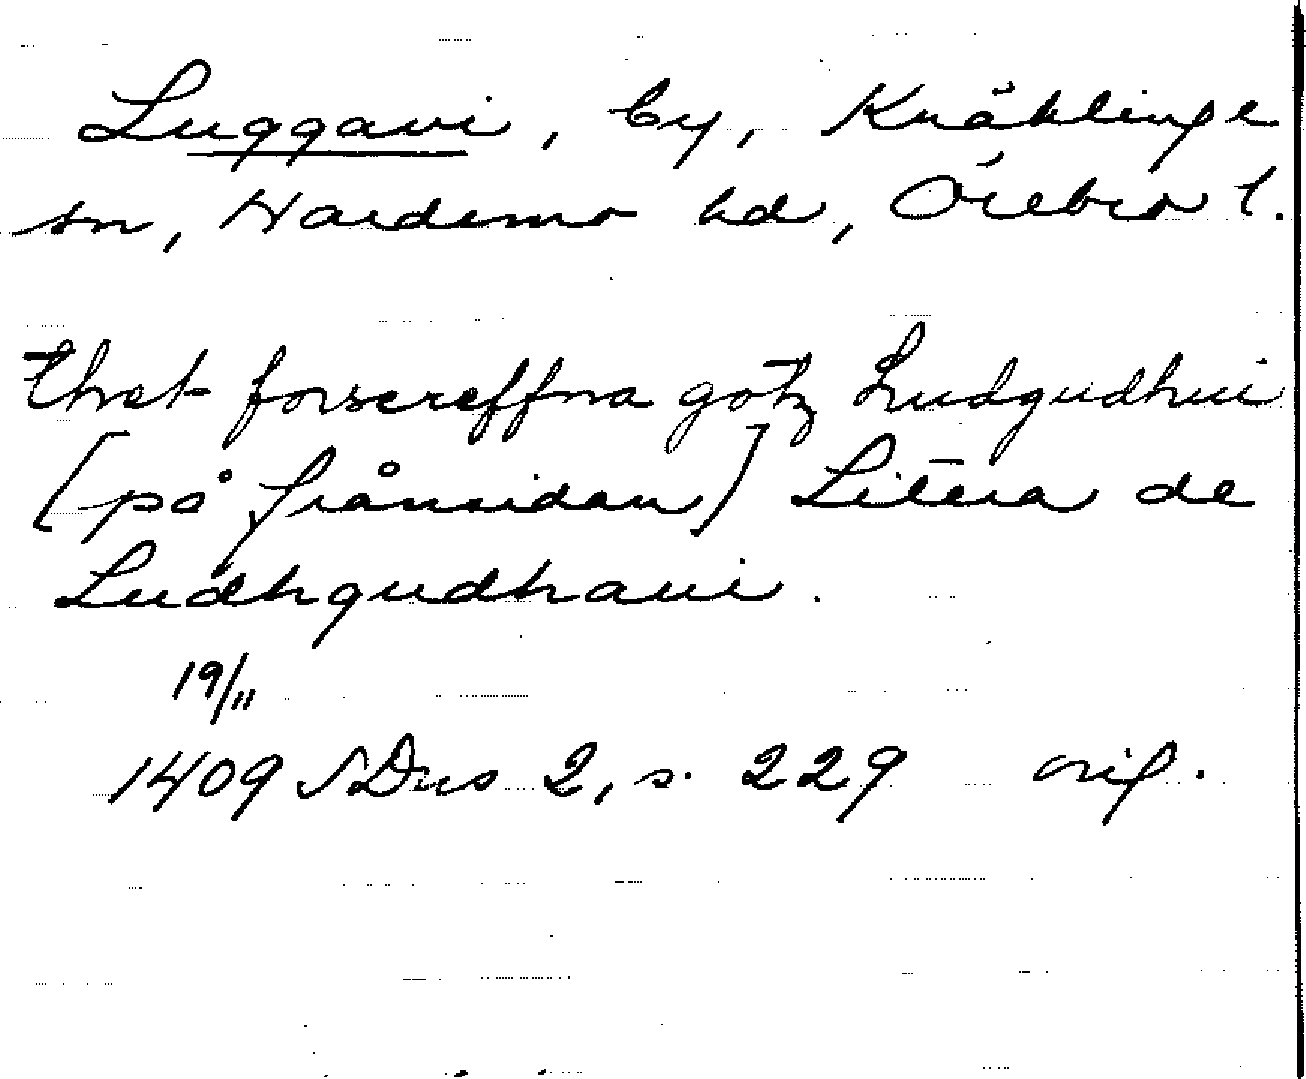 Luggavi, by, Knäblinge
sn, Hardemo hd, Örebro l.
thet forscreffna götz Ludgudhui
[på frånsidan] Litera de
Ludhgudhaui.
19/11
1409 SDns 2, s. 229 orig.